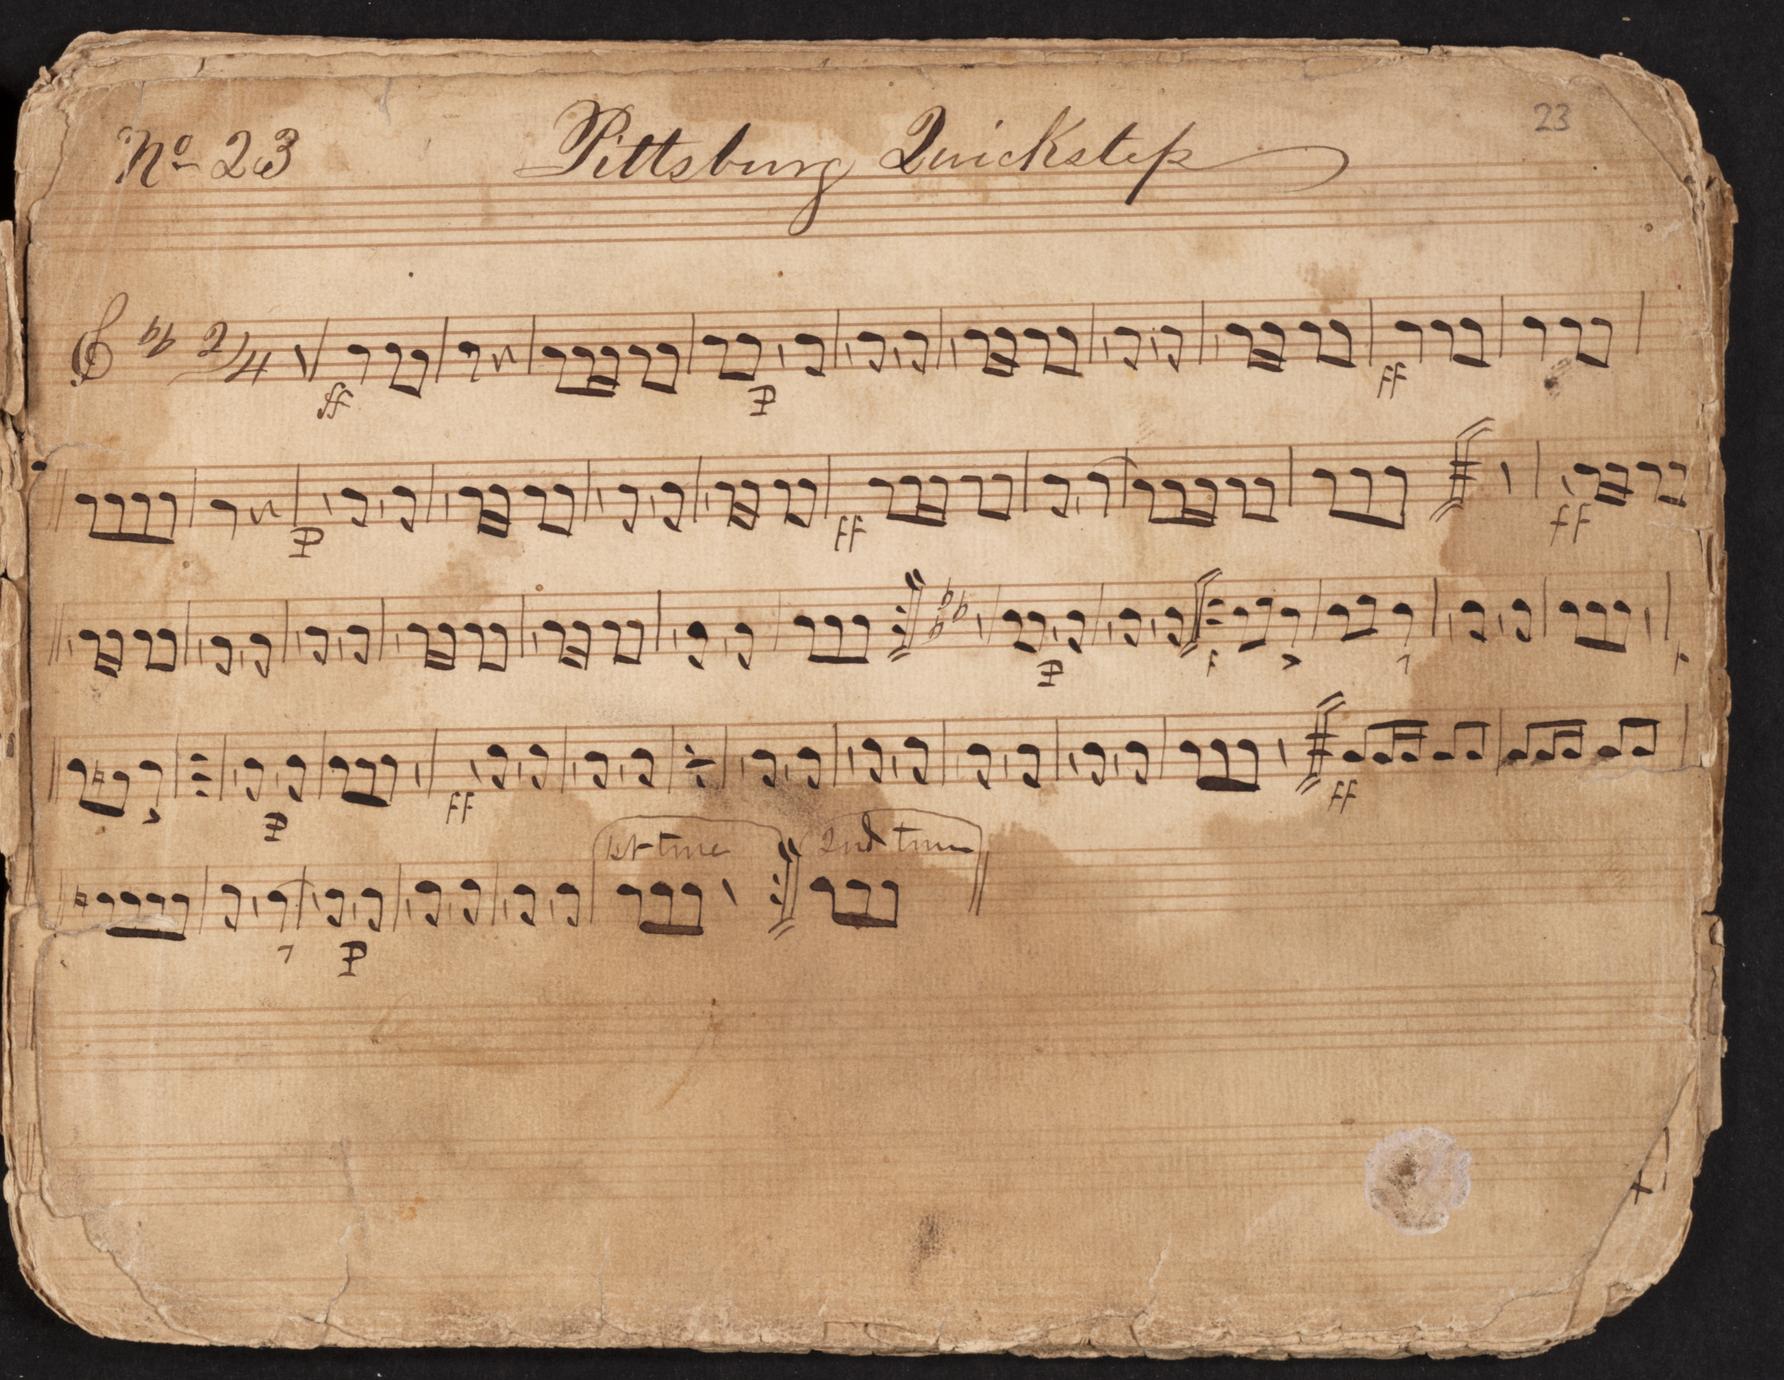 No 23 Pittsburg Quickstep 23
2/4
ff P ff
P ff ff
P
P ff ff
1st time 2nd time
P